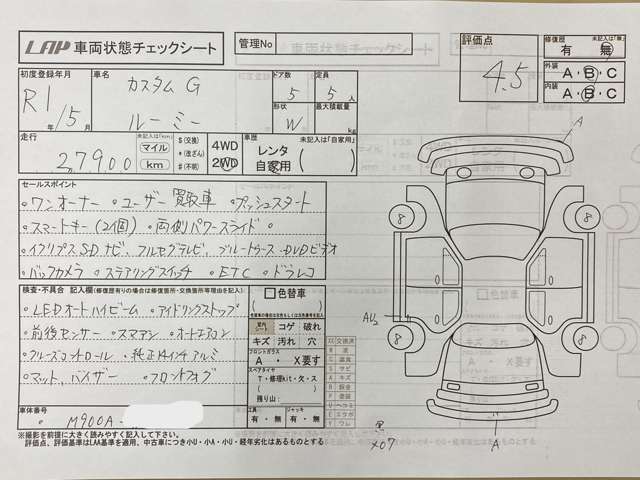 LAP 車両状態チェックシート
管理No
評価点
4.5
修復歴 未記入は「無」
有・無
外装 A・B・C
内装 A・B・C
初度登録年月
R1年/5月
車名
カスタム G
ルーミー
ドア数
5
定員
5人
形状
W
最大積載量
kg
走行
27,900
未記入は(km)
マイル
km
$(交換)
*(改ざん)
#(不明)
4WD
2WD
車歴 未記入は「自家用」
レンタ
自家用
セールスポイント
・ワンオーナー ・ユーザー買取車 ・プッシュスタート
・スマートキー(2個) ・両側パワースライド ・
・イクリプスSDナビ、フルセグテレビ、ブルートゥース・DVDビデオ
・バックカメラ ・ステアリングスイッチ ・ETC ・ドラレコ
検査・不具合 記入欄(修復歴有りの場合は修復箇所・交換箇所等理由を記入)
・LEDオートハイビーム ・アイドリングストップ
・前後センサー ・スマアシ ・オートエアコン
・クルーズコントロール ・純正14インチアルミ
・マット、バイザー ・フロントフォグ
色替車
室内シート
コゲ 破れ
キズ 汚れ 穴
フロントガラス
A ・ X要す
スペアタイヤ
T・修理kit・欠・ス
残り山:
工具
有・無
ジャッキ
有・無
XX 交換済
A キズ
車体番号
・M900A-
※撮影を前提に大きく読みやすく記入して下さい。
評価点、評価基準はLAA基準を適用、中古車につき小U・小A・小U・経年劣化はあるものとする
A
8
8
8
8
AU2
A
黒
X07